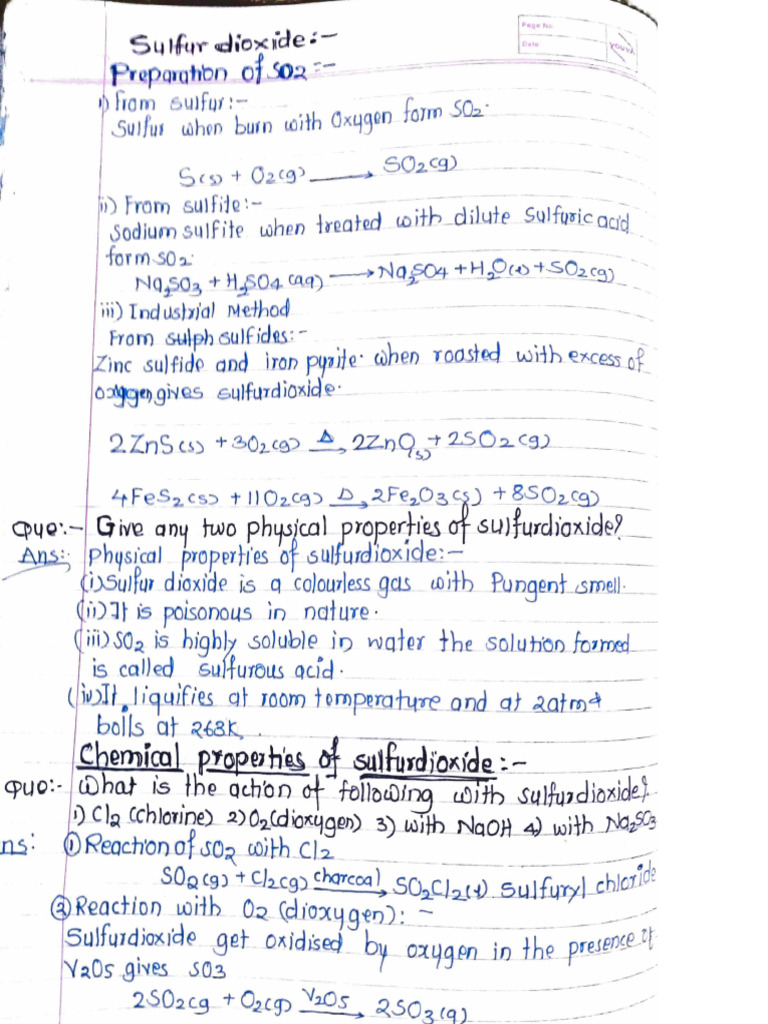 Page No.
Date
YOUVA
Sulfur dioxide:-
Preparation of SO2:-
i) from sulfur:-
Sulfur when burn with Oxygen form SO2.
S(s) + O2(g) ⟶ SO2(g)
ii) From sulfite:-
Sodium sulfite when treated with dilute Sulfuric acid
form SO2.
Na2SO3 + H2SO4(aq) ⟶ Na2SO4 + H2O(l) + SO2(g)
iii) Industrial Method
From sulph sulfides:-
Zinc sulfide and iron pyrite. when roasted with excess of
oxygen, gives sulfurdioxide.
2ZnS(s) + 3O2(g) Δ⟶ 2ZnO(s) + 2SO2(g)
4FeS2(s) + 11O2(g) Δ⟶ 2Fe2O3(s) + 8SO2(g)
Que:- Give any two physical properties of sulfurdioxide?
Ans:- Physical properties of sulfurdioxide:-
(i) Sulfur dioxide is a colourless gas with Pungent smell.
(ii) It is poisonous in nature.
(iii) SO2 is highly soluble in water the solution formed
is called sulfurous acid.
(iv) It liquifies at room temperature and at 2atm &
boils at 268K.
Chemical properties of sulfurdioxide:-
Que:- What is the action of following with sulfurdioxide?
1) Cl2 (chlorine) 2) O2 (dioxygen) 3) with NaOH 4) with Na2SO3
ns: ① Reaction of SO2 with Cl2
SO2(g) + Cl2(g) charcoal⟶ SO2Cl2(l) Sulfuryl chloride
② Reaction with O2 (dioxygen):-
Sulfurdioxide get oxidised by oxygen in the presence of
V2O5 gives SO3
2SO2(g + O2(g) V2O5⟶ 2SO3(g)